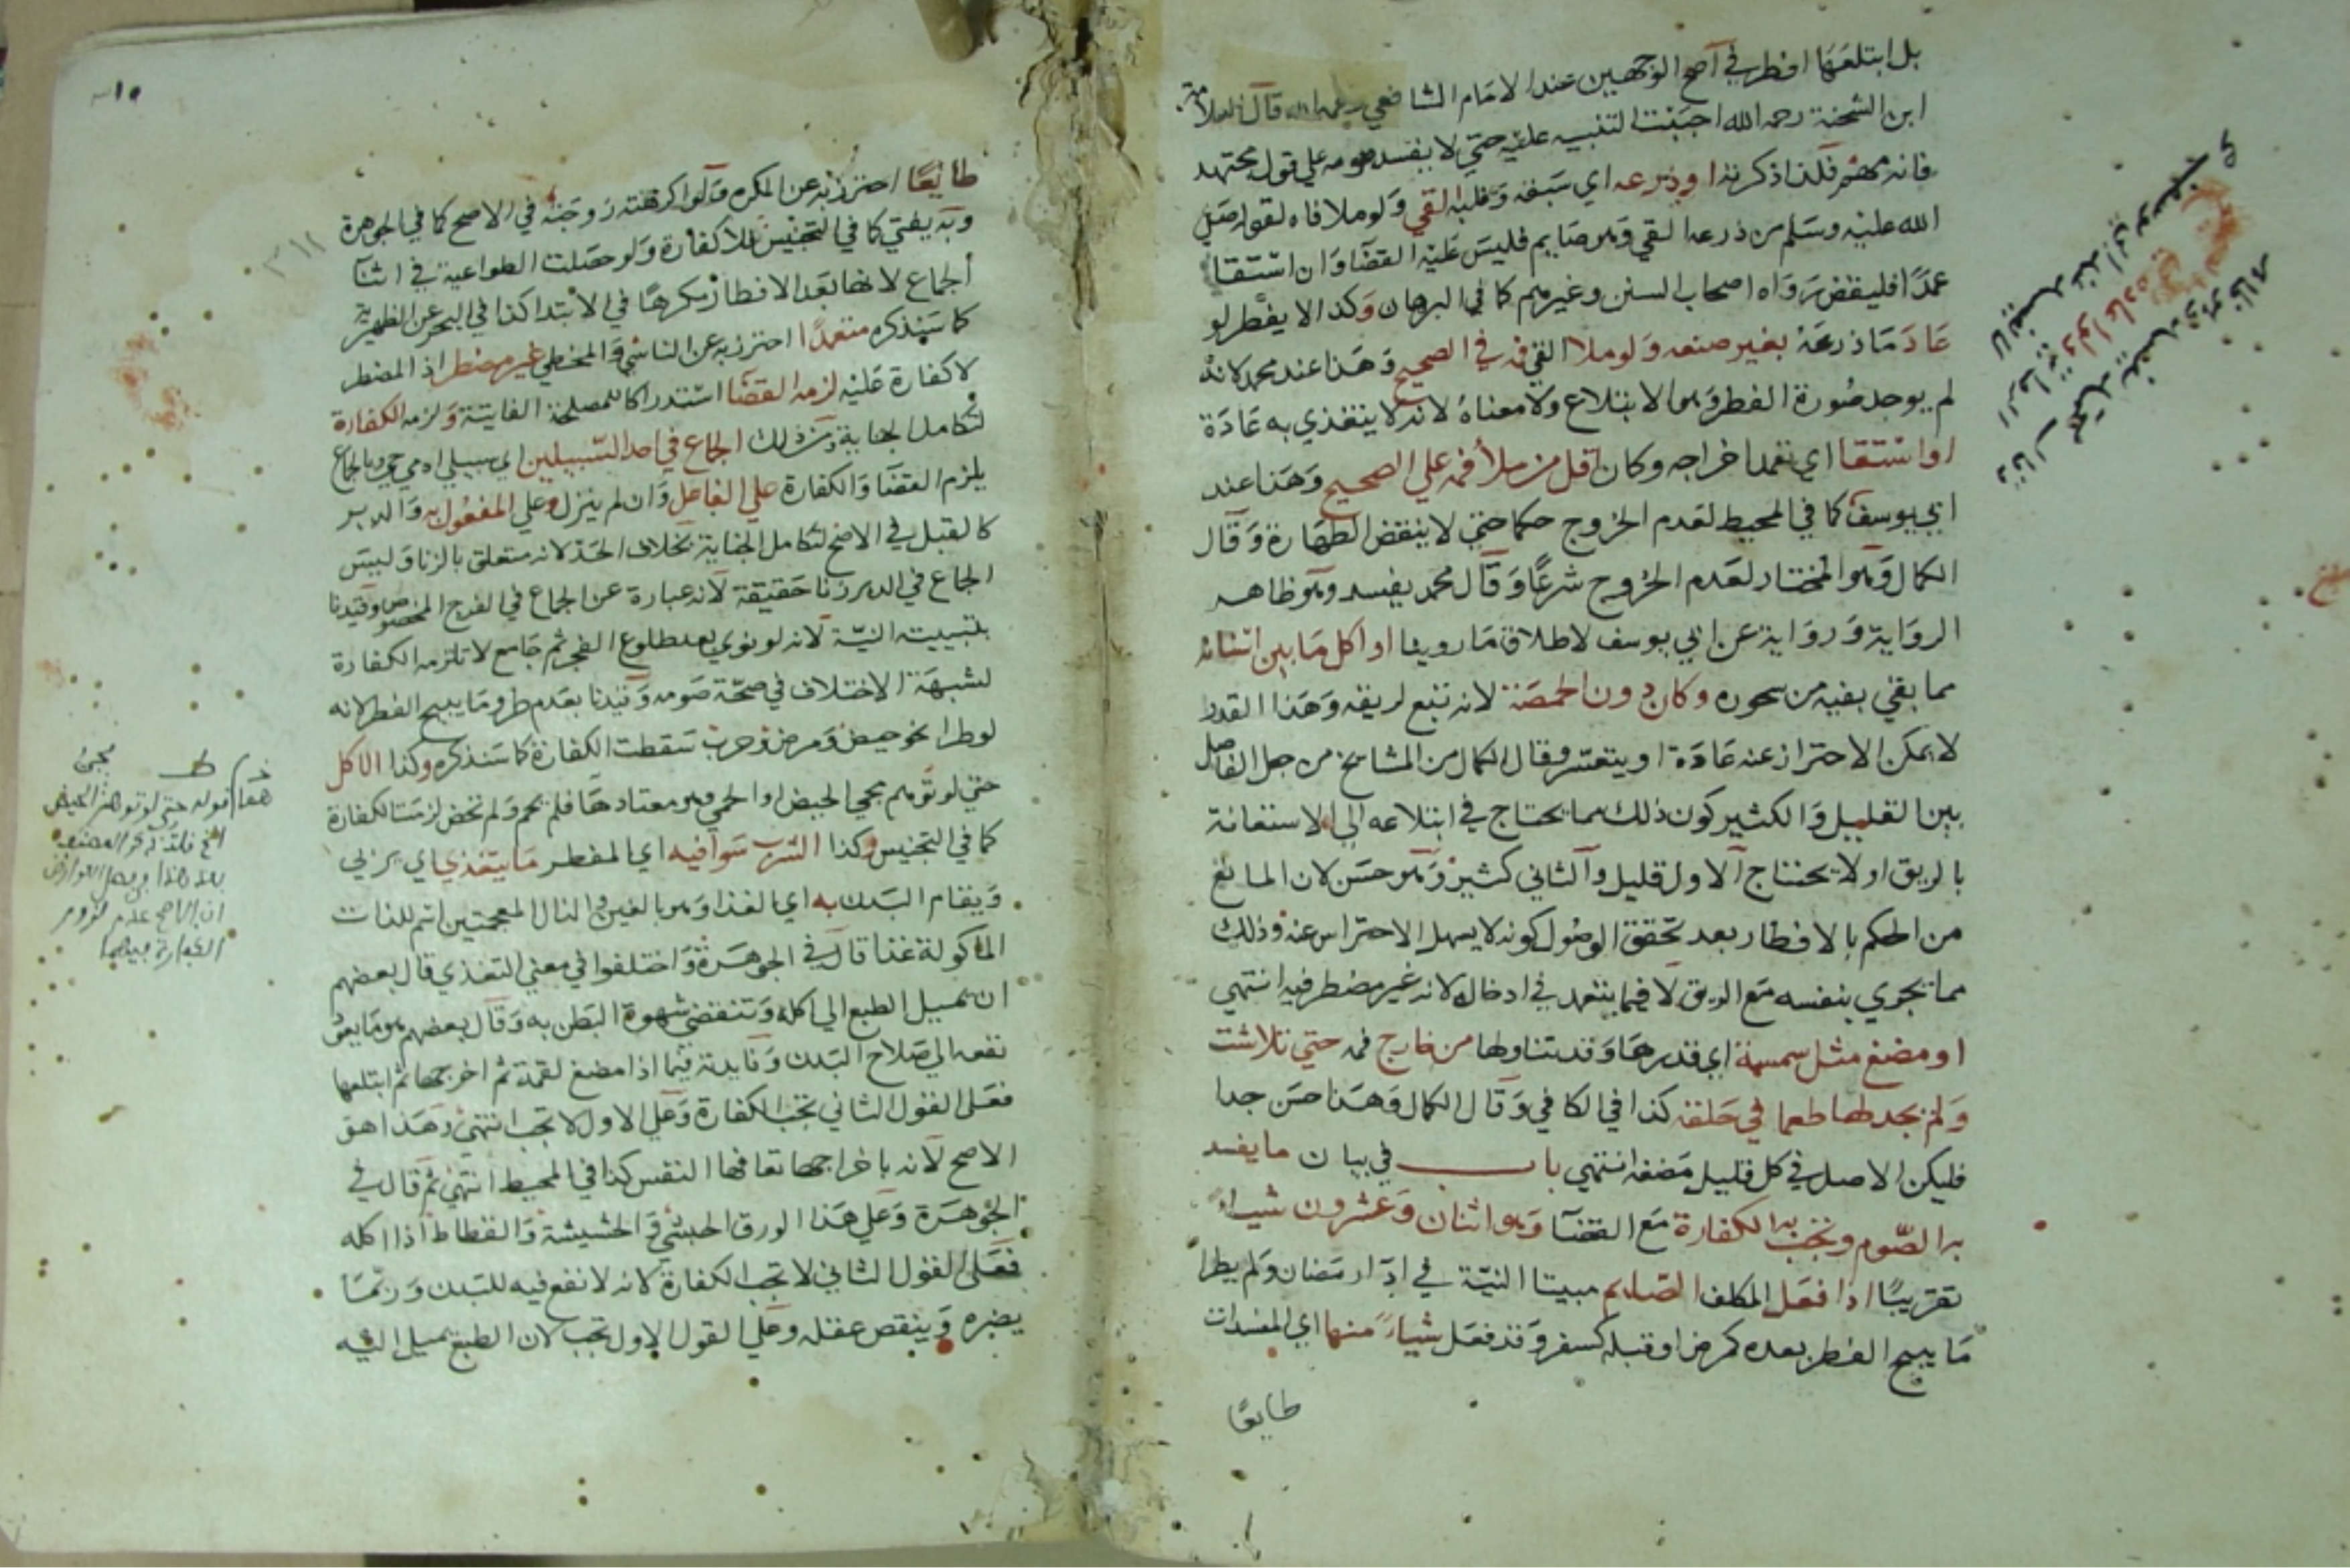 بل ابتلعها افطر في اصح الوجهين عند الامام الشافعي رحمه الله قال العلامة
ابن الشحنة رحمه الله احببت التنبيه عليه حتي لا يفسد صومه علي قول مجتهد
فانه مهم فلذا ذكرته او ذرعه اي سبقه وغلبه القي ولو ملا فاه لقوله صلي
الله عليه وسلم من ذرعه القي وهو صايم فليس عليه القضا وان استقا
عمدا فليقض رواه اصحاب السنن وغيرهم كما في البرهان وكذا لا يفطر لو
عاد ما ذرعه بغير صنعه ولو ملا القي فه في الصحيح وهذا عند محمد لانه
لم يوجد صورة الفطر وهو الابتلاع ولا معناه لانه لا يتغذي به عادة
او استقا اي تعمد اخراجه وكان اقل من ملأ فمه علي الصحيح وهذا عند
ابي يوسف كما في المحيط لعدم الخروج حكما حتي لا ينقض الطهارة وقال
الكمال وهو المختار لعدم الخروج شرعا وقال محمد يفسد وهو ظاهر
الرواية ورواية عن ابي يوسف لاطلاق ما روينا او اكل ما بين اسنانه
مما بقي بفيه من سحوره وكان دون الحمصة لانه تبع لريقه وهذا القدر
لا يمكن الاحتراز عنه عادة او يتعسر وقال الكمال من المشايخ من جعل الفاصل
بين القليل والكثير كون ذلك مما يحتاج في ابتلاعه الي الاستعانة
بالريق او لا يحتاج الاول قليل والثاني كثير وهو حسن لان المانع
من الحكم بالافطار بعد تحقق الوصول كونه لا يسهل الاحتراس عنه وذلك
مما يجري بنفسه مع الريق لا فيما يتعمد في ادخاله لانه غير مضطر فيه انتهي
او مضغ مثل سمسمة اي قدرها وقد تناولها من خارج فمه حتي تلاشت
ولم يجد لها طعما في حلقه كذا في الكافي وقال الكمال وهذا حسن جدا
فليكن الاصل في كل قليل مضغه انتهي باب في بيان ما يفسد
به الصوم وتجب به الكفارة مع القضا وهو اثنان وعشرون شياء
تقريبا اذا فعل المكلف الصايم مبيتا النية في ادا رمضان ولم يطرا
ما يبيح الفطر بعده كمرض او قبله كسفر وقد فعل شياء منها اي المفسدات
طايعا
طايعا احترز به عن المكره ولو اكرهته زوجته في الاصح كما في الجوهرة
وبه يفتي كما في التجنيس لا كفارة ولو حصلت الطواعية في اثنا
الجماع لانها بعد الافطار مكرها في الابتدا كذا في البحر عن الظهيرية
كما سنذكره متعمدا احترز به عن الناسي والمخطي غير مضطر اذ المضطر
لا كفارة عليه لزمه القضا استدراكا للمصلحة الفايتة ولزمه الكفارة
لتكامل الجناية ذلك الجماع في احد السبيلين اي سبيلي ادمي حي وبالجماع
يلزم القضا والكفارة علي الفاعل وان لم ينزل وعلي المفعول به والدبر
كالقبل في الاصح لتكامل الجناية بخلاف الحد لانه متعلق بالزنا وليس
الجماع في الدبر زنا حقيقة لانه عبارة عن الجماع في الفرج المخصوص وقيدنا
بتبييت النية لانه لو نوي بعد طلوع الفجر ثم جامع لا تلزمه الكفارة
لشبهة الاختلاف في صحة صومه وقيدنا بعدم طرو ما يبيح الفطر لانه
لو طرا نحو حيض ومرض سقطت الكفارة كما سنذكره وكذا الاكل
حتي لو توهم مجي الحيض او الحمي وهو معتادها فلم تحم ولم تحض لزمتا الكفارة
كما في التجنيس وكذا الشرب سوا فيه اي المفطر ما يتغذي اي يربي
ويقام البدن به اي الغذا وهو بالغين والذال المعجمتين اسم للذات
الماكولة غذا قال في الجوهرة واختلفوا في معني التغذي قال بعضهم
ان يميل الطبع الي اكله وتنقضي شهوة البطن به وقال بعضهم هو ما يعود
نفعه الي صلاح البدن وفايدته فيما اذا مضغ لقمة ثم اخرجها ثم ابتلعها
فعلى القول الثاني تجب الكفارة وعلي الاول لا تجب انتهي وهذا هو
الاصح لانه باخراجها تعافها النفس كذا في المحيط انتهي ثم قال في
الجوهرة وعلي هذا الورق الحبشي والحشيشة والقطاط اذا اكله
فعلى القول الثاني لا تجب الكفارة لانه لا نفع فيه للبدن وربما
يضره وينقص عقله وعلي القول الاول تجب لان الطبع يميل اليه
قوله حتي لو توهم الحيض